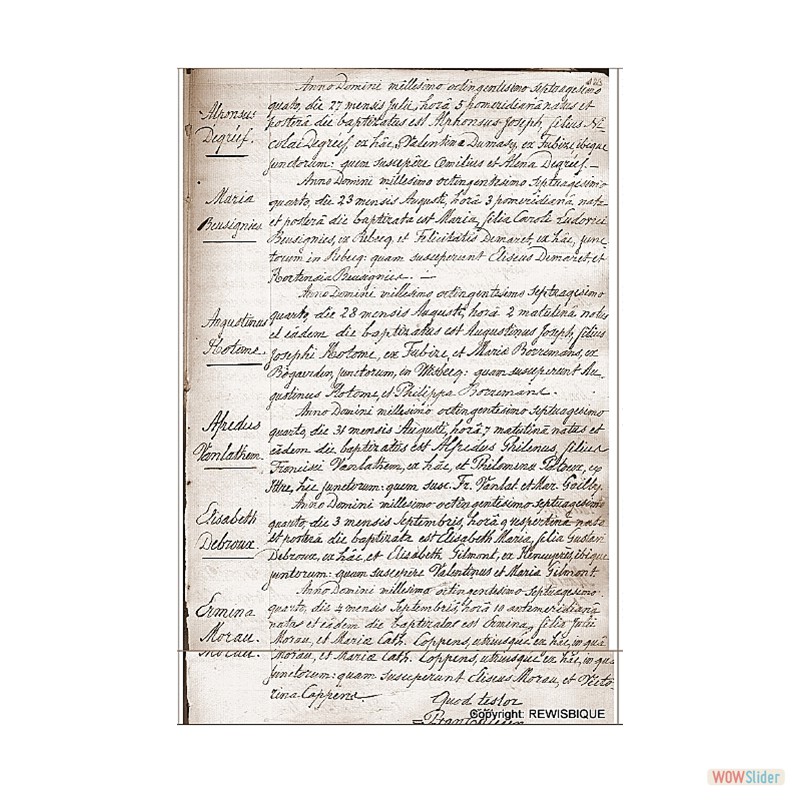 Anno Domini millesimo octingentesimo septuagesimo
Alphonsus
Degrief.
quarto, die 27 mensis Julii, horâ 5 pomeridianâ natus et
posterâ die baptizatus est Alphonsus Joseph, filius Ni-
colai Degrief, ex hâc, Valentina Dumay, ex Tubize, ibique
junctorum: quem suscepêre Omilius et Elena Degrief. —
Anno Domini millesimo octingentesimo septuagesimo
Maria
Beusignies
quarto, die 23 mensis Augusti, horâ 3 pomeridianâ, nata
et posterâ die baptizata est Maria, filia Caroli Ludovici
Beusignies, ex Rebecq, et Felicitatis Demaret, ex hâc, junc-
torum in Rebecq: quam susceperunt Eliseus Demaret, et
Hortensia Beusignies. —
Anno Domini millesimo octingentesimo septuagesimo
Augustinus
Hotome.
quarto, die 28 mensis Augusti, horâ 2 matutinâ natus
et eâdem die baptizatus est Augustinus Joseph, filius
Josephi Hotome, ex Tubize, et Mariæ Borremans, ex
Bogaerden, junctorum, in Wisbecq: quem susceperunt Au-
gustinus Hotome, et Philippa Borremans.
Anno Domini millesimo octingentesimo septuagesimo
Alfredus
Vanlathem.
quarto, die 31 mensis Augusti, horâ 7 matutinâ natus et
eâdem die baptizatus est Alfredus Philenus, filius
Francisci Vanlathem, ex hâc, et Philomena ex
Ittre, hîc junctorum: quem susc. Fr. Vanlat. et Mar. Goilly.
Anno Domini millesimo octingentesimo septuagesimo
Elisabeth
Debroux.
quarto, die 3 mensis Septembris, horâ 9 vespertinâ nata
et posterâ die baptizata est Elisabeth Maria, filia Gustavi
Debroux, ex hâc, et Elisabeth Gilmont, ex ibique
junctorum: quam suscepêre Valentinus et Maria Gilmont.
Anno Domini millesimo octingentesimo septuagesimo
Ermina
Morau.
quarto, die 4 mensis Septembris, horâ 10 antemeridianâ
natas et eâdem die baptizatas est Ermina, filia Julii
Morau, et Mariæ Cath. Coppens, utriusque ex hâc, in quâ
Morau, et Mariæ Cath. Coppens, utriusque ex hâc, in quâ
junctorum: quam susceperunt Eliseus Morau, et Victo-
rina Coppens.
Quod testor
Copyright: REWISBIQUE
WOWSlider